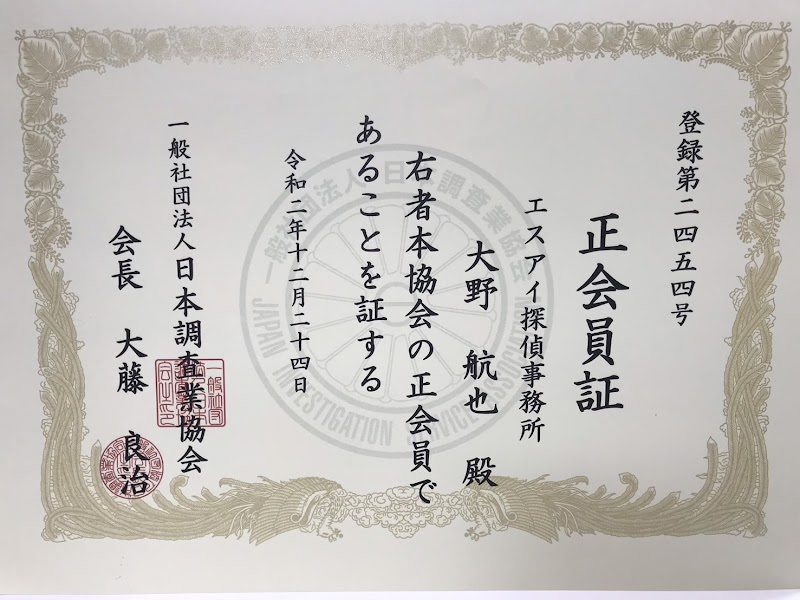 登録第二四五四号
正会員証
エスアイ探偵事務所
大野 航也 殿
右者本協会の正会員で
あることを証する
令和二年十二月二十四日
一般社団法人日本調査業協会
会長 大藤 良治
一般社団法人 日本調査業協会
JAPAN INVESTIGATION SERVICE ASSOCIATION